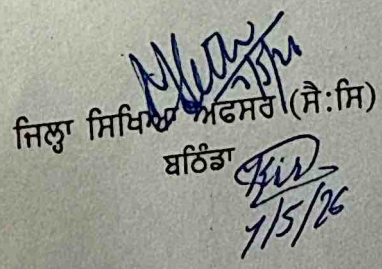 ਜਿਲ੍ਹਾ ਸਿਖਿਆ ਅਫਸਰ (ਸੈ:ਸਿ)
ਬਠਿੰਡਾ
7/5/26